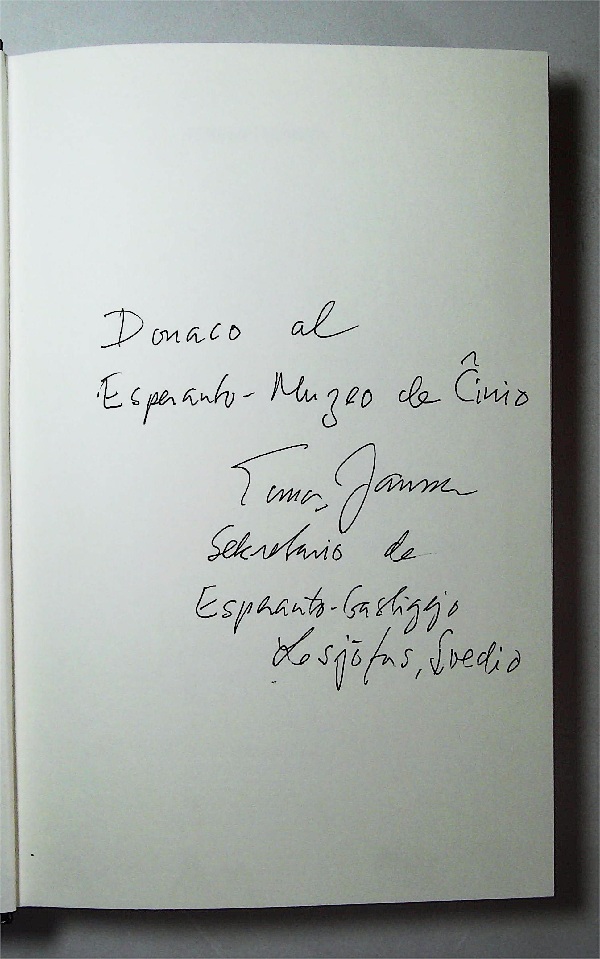 Donaco al
Esperanto-Muzeo de Ĉinio
Tomas Jansson
Sekretario de
Esperanto-Gastigejo
Lesjöfors, Svedio